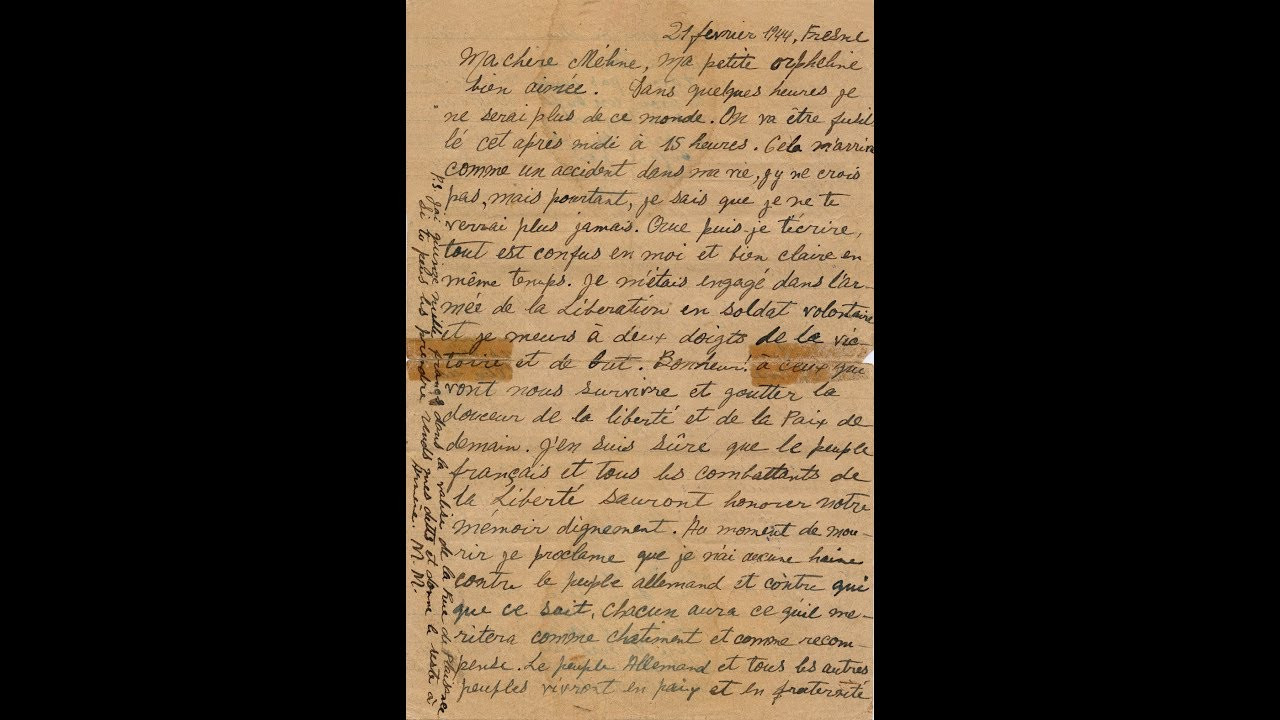 21 fevrier 1944, Fresne
Ma chère Méline, Ma petite orpheline
bien aimée. Dans quelques heures je
ne serai plus de ce monde. On va être fusil
lé cet après midi à 15 heures. Cela m'arrive
comme un accident dans ma vie, j'y ne crois
pas, mais pourtant, je sais que je ne te
verrai plus jamais. Que puis-je t'écrire,
tout est confus en moi et bien claire en
même temps. Je m'étais engagé dans l'ar-
mée de la Libération en soldat volontaire
et je meurs à deux doigts de la vic-
toire et de but. Bonheur! à ceux qui
vont nous survivre et goutter la
douceur de la liberté et de la Paix de
demain. J'en suis sûre que le peuple
français et tous les combattants de
la Liberté sauront honorer notre
mémoir dignement. Au moment de mou-
rir je proclame que je n'ai aucune haine
contre le peuple allemand et contre qui
que ce soit, chacun aura ce qu'il me-
ritera comme chatiment et comme recom-
pense. Le peuple Allemand et tous les autres
peuples vivront en paix et en fraternité
Ps. J'ai quinze mille francs dans la valise de la Rue de Plaisance
Si tu peus les prendre rends mes dettes et donne le reste à
Armène. M. M.